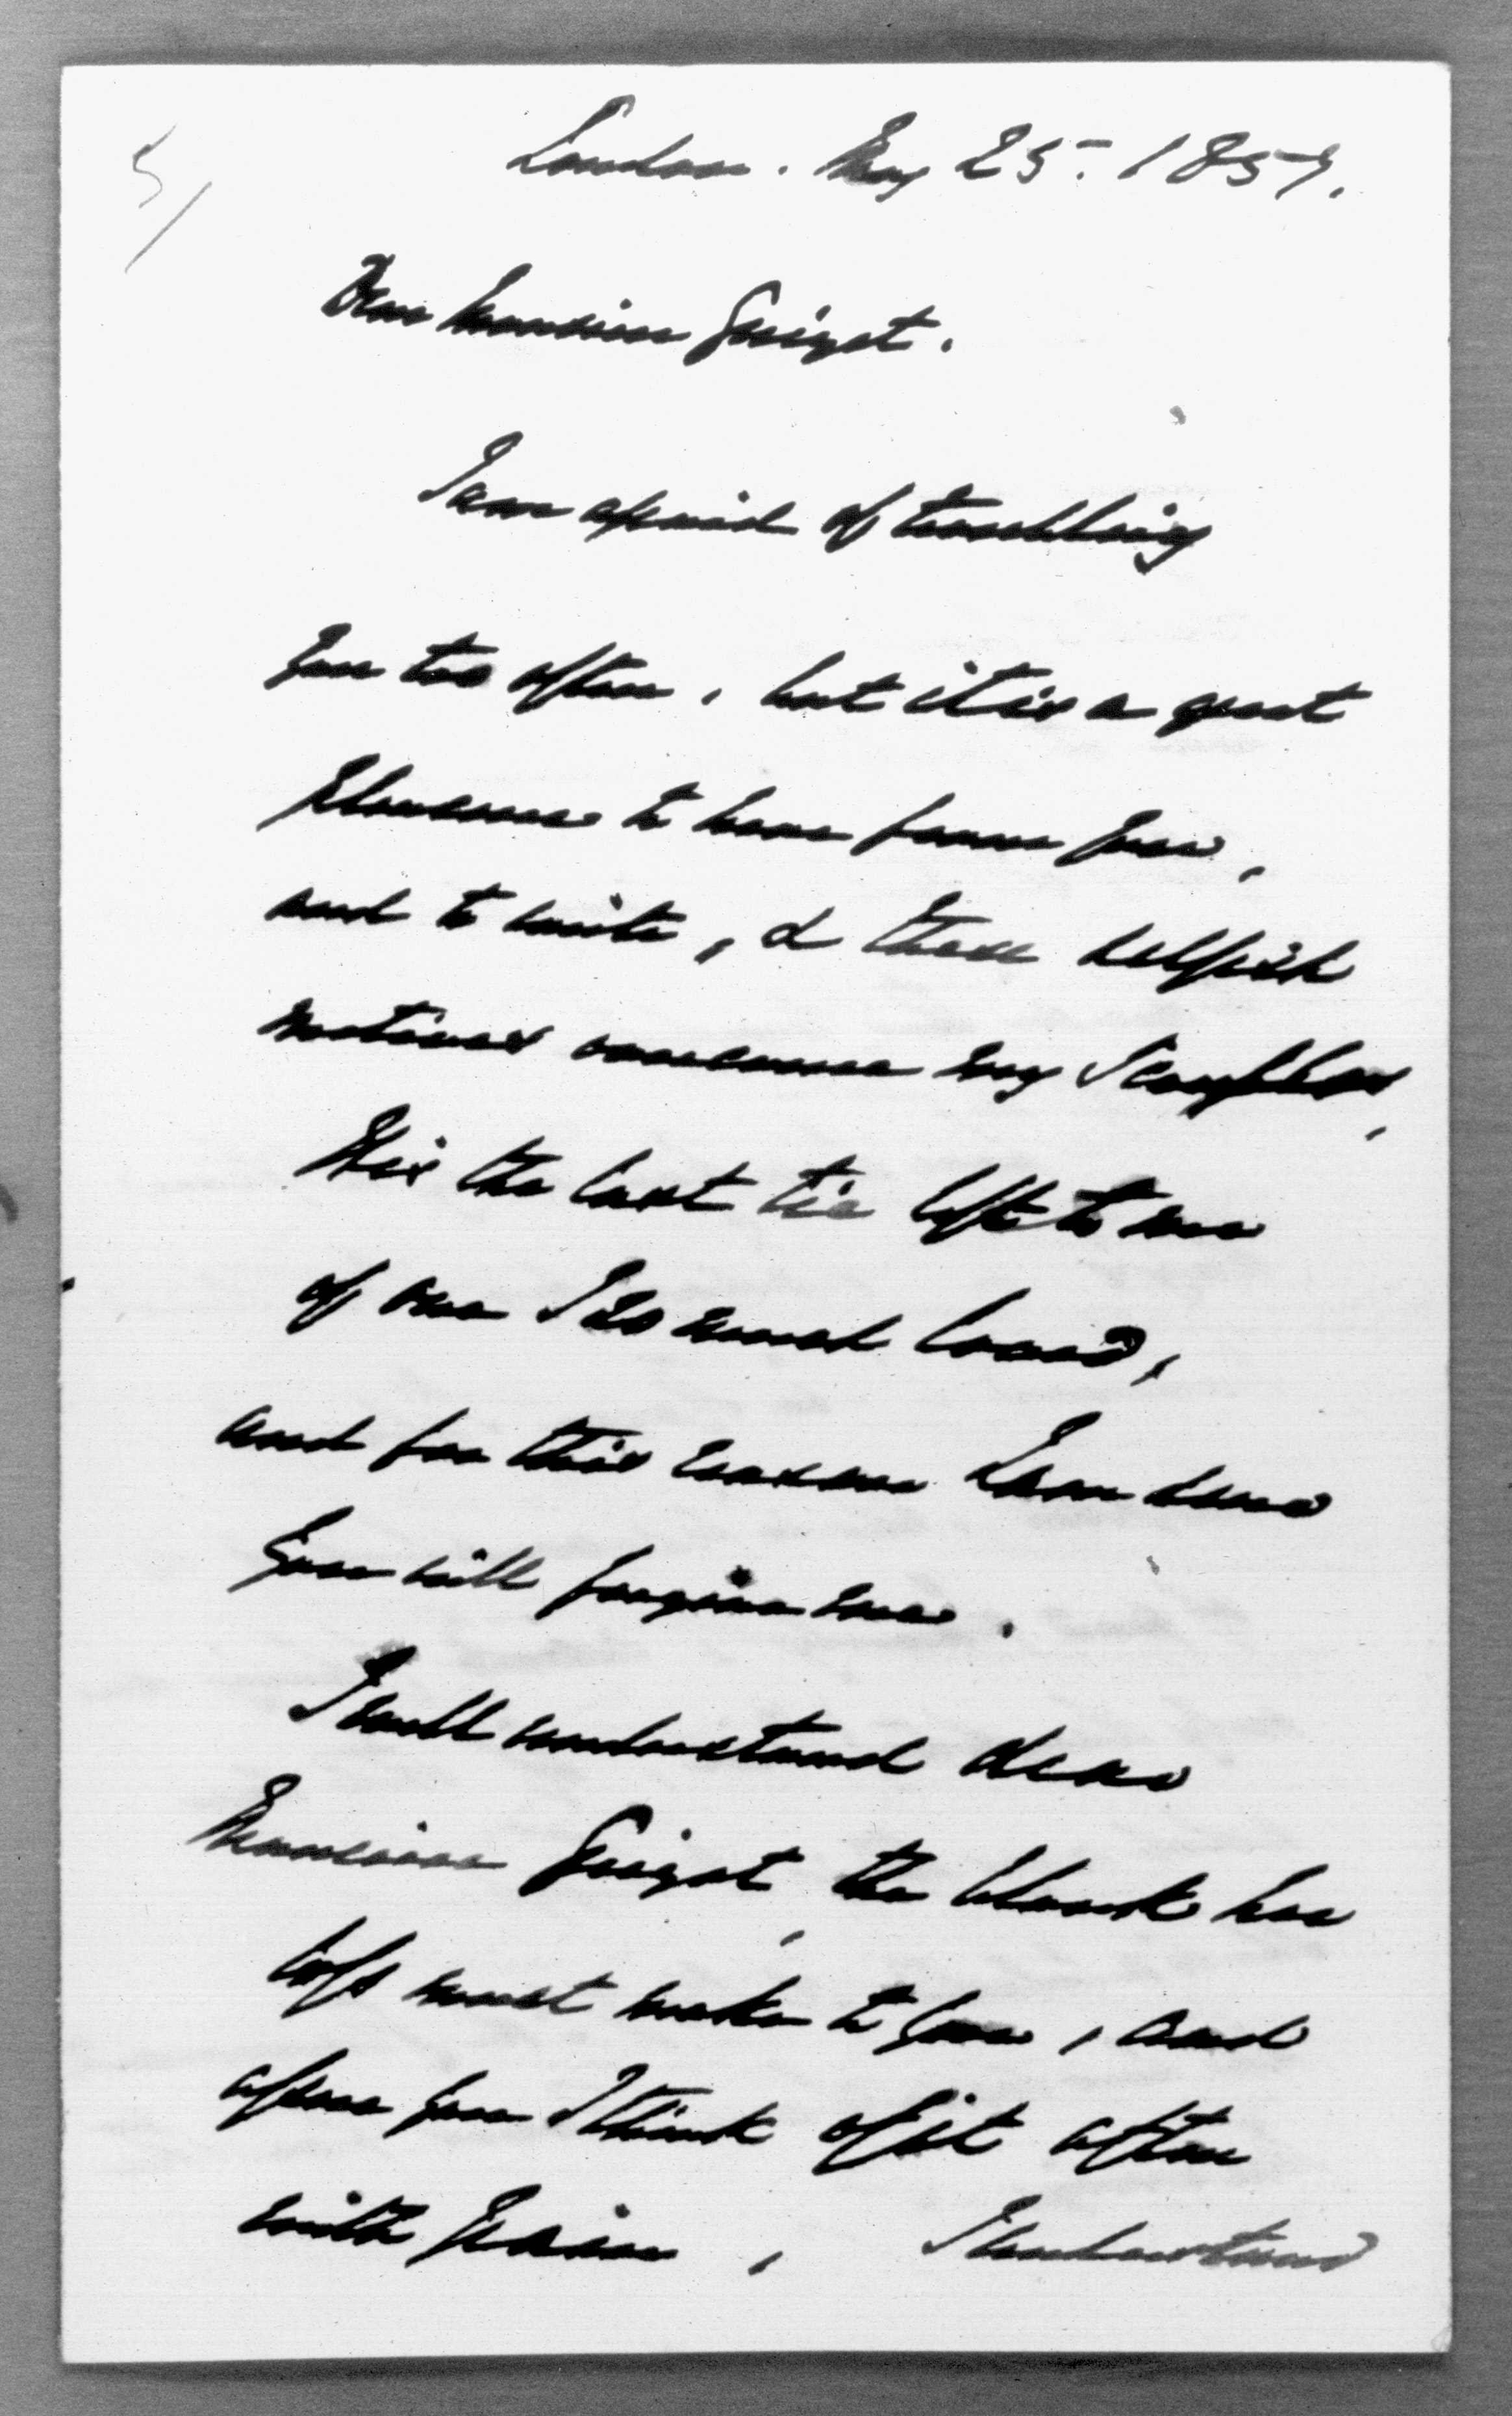 5/
London. May 25. 1857.
Dear Monsieur Guizot.
I am afraid of troubling
you too often, but it is a great
pleasure to hear from you,
and to write, & these selfish
motives overcome my scruples,
this the last tie left to me
of one I so much loved,
and for this reason I am sure
you will forgive me.
I well understand dear
Monsieur Guizot, the blank her
loss must make to you, and
after you I think of it often
with pain, I understand